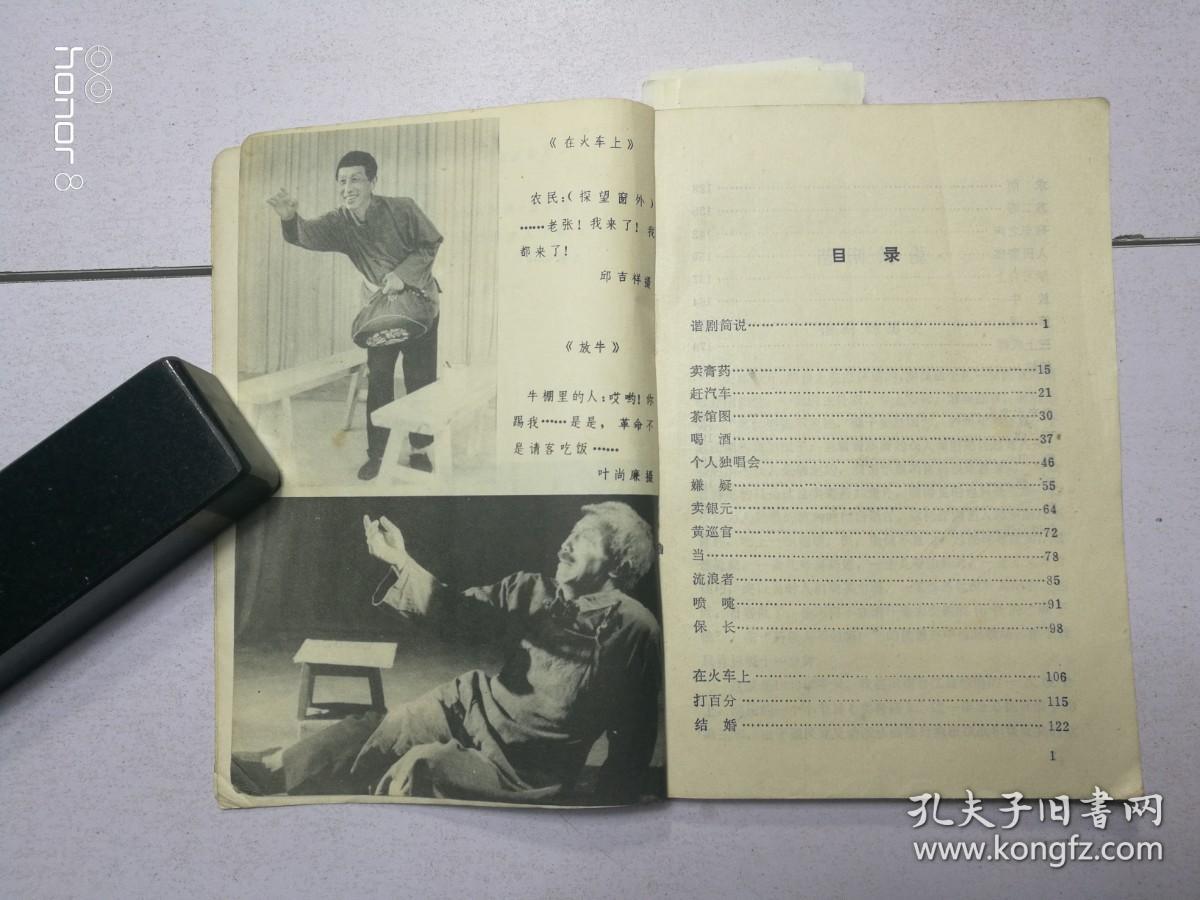 honor 8
《在火车上》
农民：(探望窗外)
……老张！我来了！我
都来了！
邱吉祥摄
《放牛》
牛棚里的人：哎哟！你
踢我……是是，革命不
是请客吃饭……
叶尚廉摄
目 录
谐剧简说……1
卖膏药……15
赶汽车……21
茶馆图……30
喝 酒……37
个人独唱会……46
嫌 疑……55
卖银元……64
黄巡官……72
当……78
流浪者……85
喷 嚏……91
保 长……98
在火车上……106
打百分……115
结 婚……122
1
孔夫子旧书网
www.kongfz.com